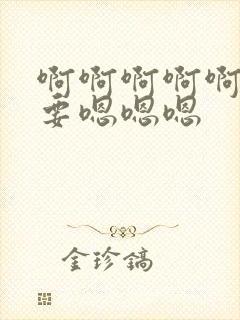 啊啊啊啊啊
要嗯嗯嗯
金珍镐